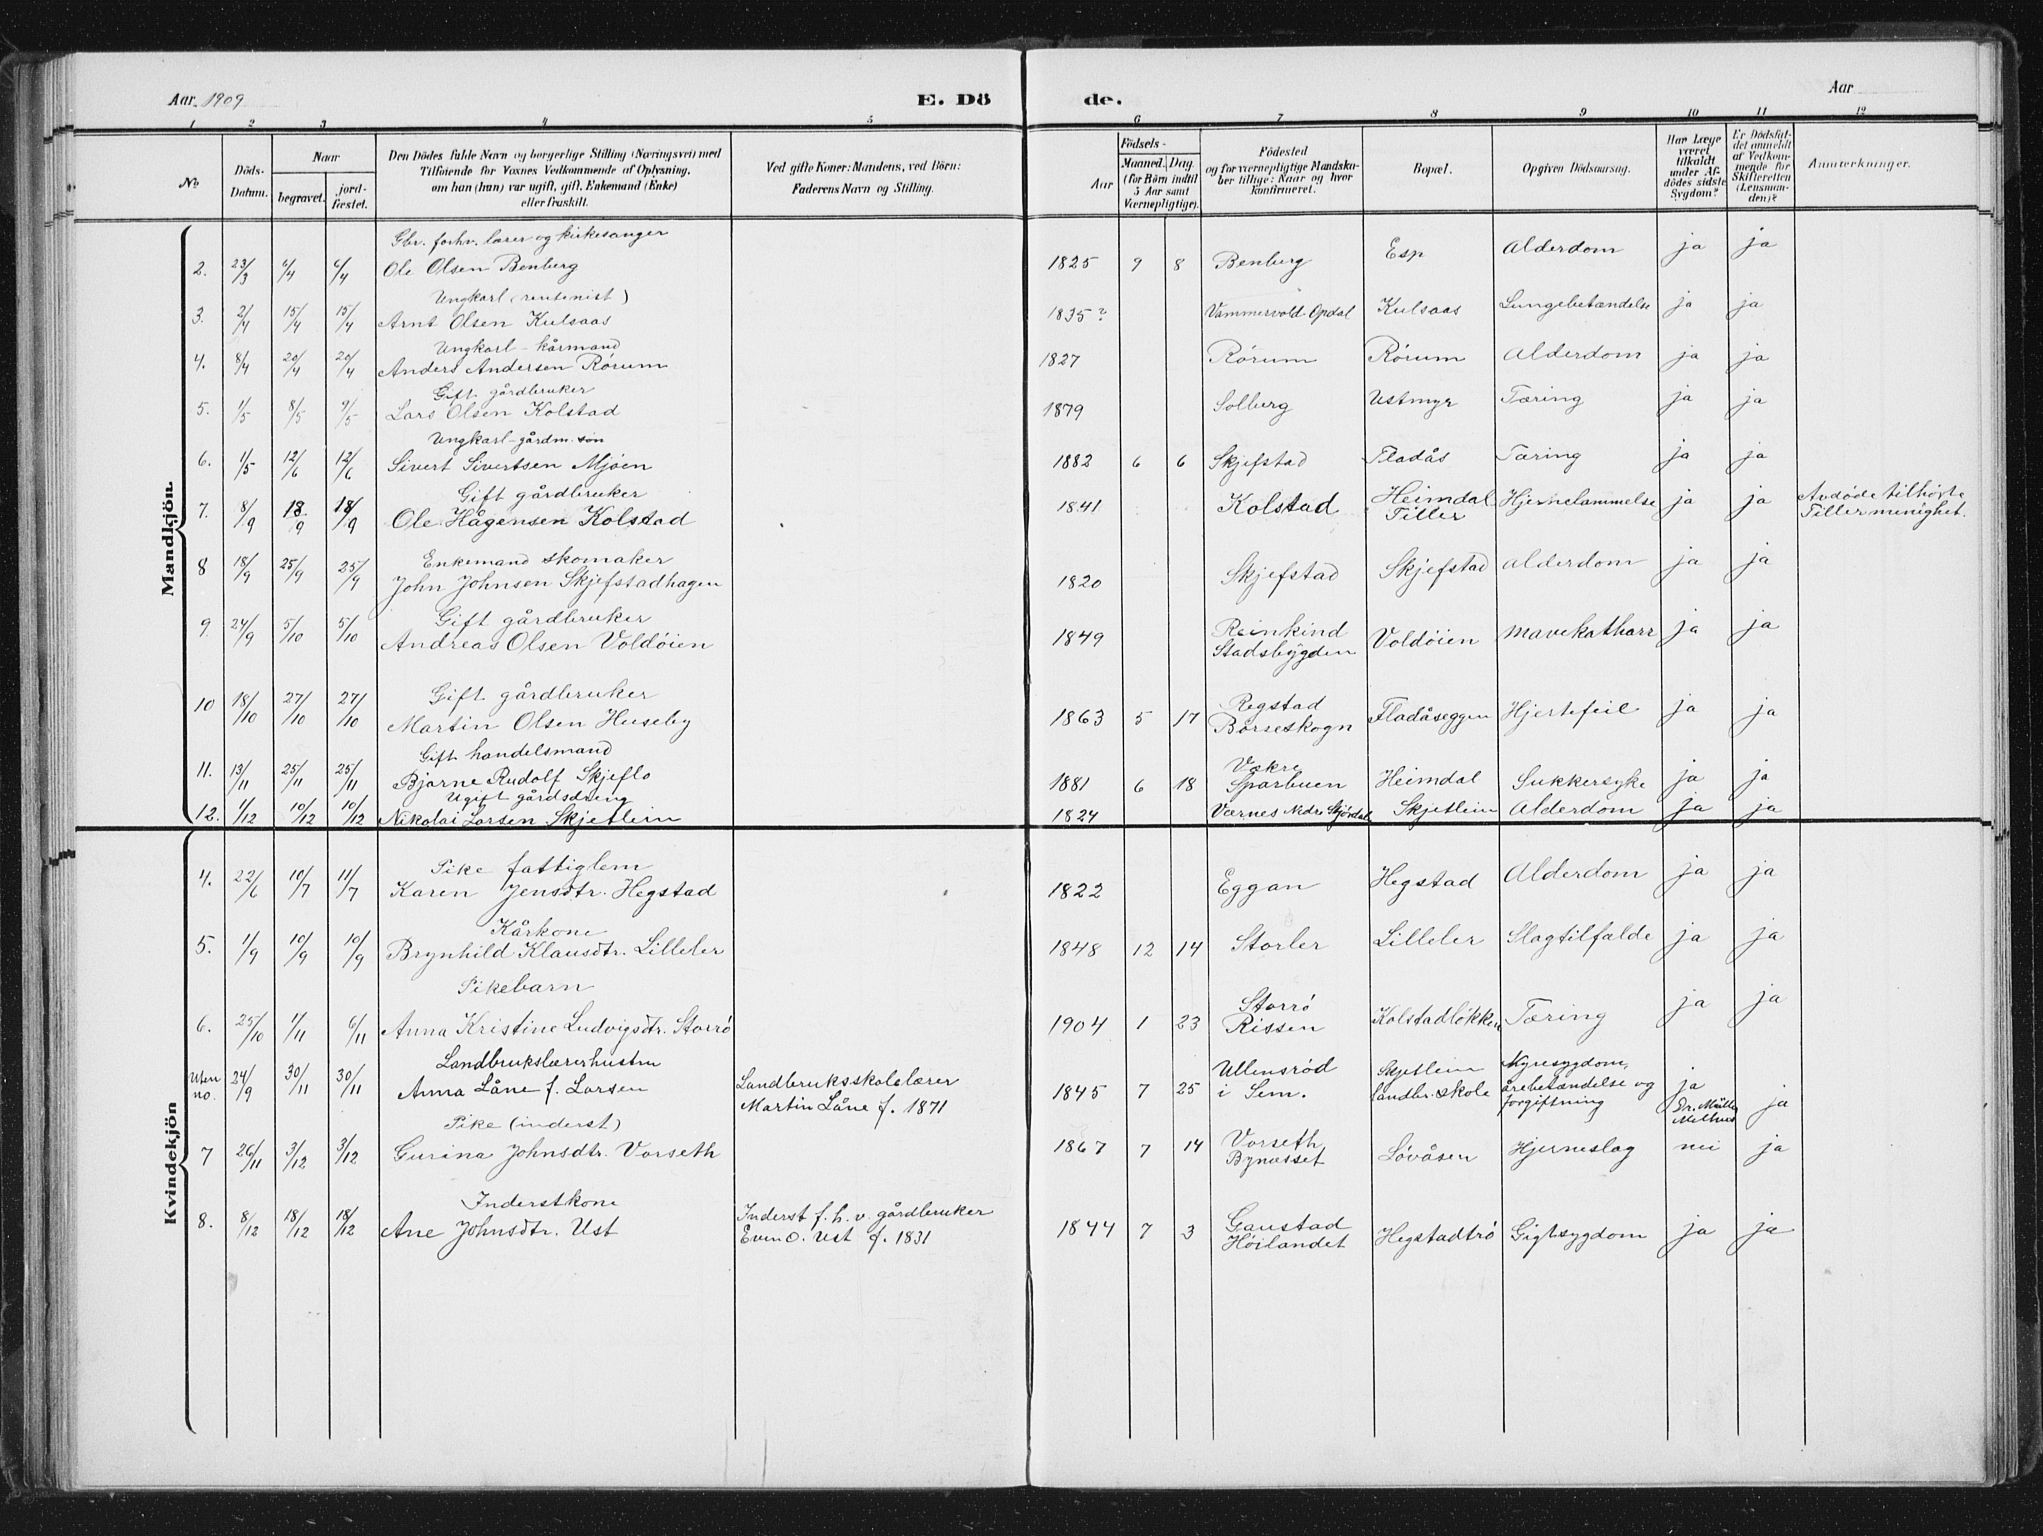 Aar 1909 E. Dö de. Aar
1 2 3 4 5 6 7 8 9 10 11 12
No.
Döds-Datum.
Naar
begravet.
jord-fæstet.
Den Dödes fulde Navn og borgerlige Stilling (Næringsvei) med
Tilföiende for Voxnes Vedkommende af Oplysning,
om han (hun) var ugift, gift, Enkemand (Enke)
eller fraskilt.
Ved gifte Koner: Mandens, ved Börn:
Faderens Navn og Stilling.
Födsels-
Aar
Maaned. Dag.
(for Börn indtil
5 Aar samt
Værnepligtige).
Födested
og for værnepligtige Mandska-
ber tillige: Naar og hvor
konfirmeret.
Bopæl.
Opgiven Dödsaarsag.
Har Læge
været
tilkaldt
under Af-
dödes sidste
Sygdom?
Er Dödsfal-
det anmeldt
af Vedkom-
mende for
Skifteretten
(Lensman-
den)?
Anmærkninger.
Mandkjön.
Gbr. forhv. lærer og kirkesanger
2. 23/3 6/4 6/4 Ole Olsen Benberg 1825 9 8 Benberg Esp Alderdom ja ja
Ungkarl (rentenist)
3. 2/4 15/4 15/4 Arnt Olsen Kulsaas 1835? Vammervold Opdal Kulsaas Lungebetændelse ja ja
Ungkarl - kårmand
4. 8/4 20/4 20/4 Anders Andersen Rörum 1827 Rörum Rörum Alderdom ja ja
Gift gårdbruker
5. 1/5 8/5 9/5 Lars Olsen Kolstad 1879 Solberg Ustmyr Tæring ja ja
Ungkarl - gårdm. søn
6. 1/5 12/6 12/6 Sivert Sivertsen Mjøen 1882 6 6 Skjefstad Fladås Tæring ja ja
Gift gårdbruker
7. 8/9 18/9 18/9 Ole Hågensen Kolstad 1841 Kolstad Heimdal Tiller Hjernelammelse ja ja Avdøde tilhörte
Tiller menighet.
Enkemand skomaker
8 18/9 25/9 25/9 John Johnsen Skjefstadhagen 1820 Skjefstad Skjefstad Alderdom ja ja
Gift gårdbruker
9. 24/9 5/10 5/10 Andreas Olsen Voldöien 1849 Reinkind Stadsbygden Voldöien Mavekatharr ja ja
Gift gårdbruker
10 18/10 27/10 27/10 Martin Olsen Huseby 1863 5 17 Regstad Börseskogn Fladåseggen Hjertefeil ja ja
Gift handelsmand
11. 13/11 25/11 25/11 Bjarne Rudolf Skjeflo 1881 6 18 Vekre Sparbuen Heimdal Sukkersyke ja ja
Ugift gårdsdreng
12. 1/12 10/12 10/12 Nikolai Larsen Skjetlein 1824 Værnes Nedre Stjördal Skjetlein Alderdom ja ja
Kvindekjön
Pike fattiglem
4. 22/6 10/7 11/7 Karen Jensdtr. Hegstad 1822 Eggan Hegstad Alderdom ja ja
Kårkone
5. 1/9 10/9 10/9 Brynhild Klausdtr. Lilleler 1848 12 14 Storler Lilleler Slagtilfalde ja ja
Pikebarn
6. 25/10 1/11 6/11 Anna Kristine Ludvigsdtr. Storrö 1904 1 23 Storrö Rissen Kolstadlökken Tæring ja ja
Landbrukslærerhustru
Uten no. 24/9 30/11 30/11 Anna Låne f. Larsen Landbruksskolelærer
Martin Låne f. 1871 1845 7 25 Ullensröd i Sem. Skjetlein landbr. skole Nyresygdom,
årebetændelse og
forgiftning ja
Dr. Müller
Melhus ja
Pike (inderst)
7 26/11 3/12 3/12 Gurina Johnsdtr. Vorseth 1867 7 14 Vorseth Bynæsset Lövåsen Hjerneslag nei ja
Inderstkone
8. 8/12 18/12 18/12 Ane Johnsdtr. Ust Inderst f. h. v. gårdbruker
Even O. Ust f. 1831 1844 7 3 Gaustad Höilandet Hegstadtrö Gigtsygdom ja ja